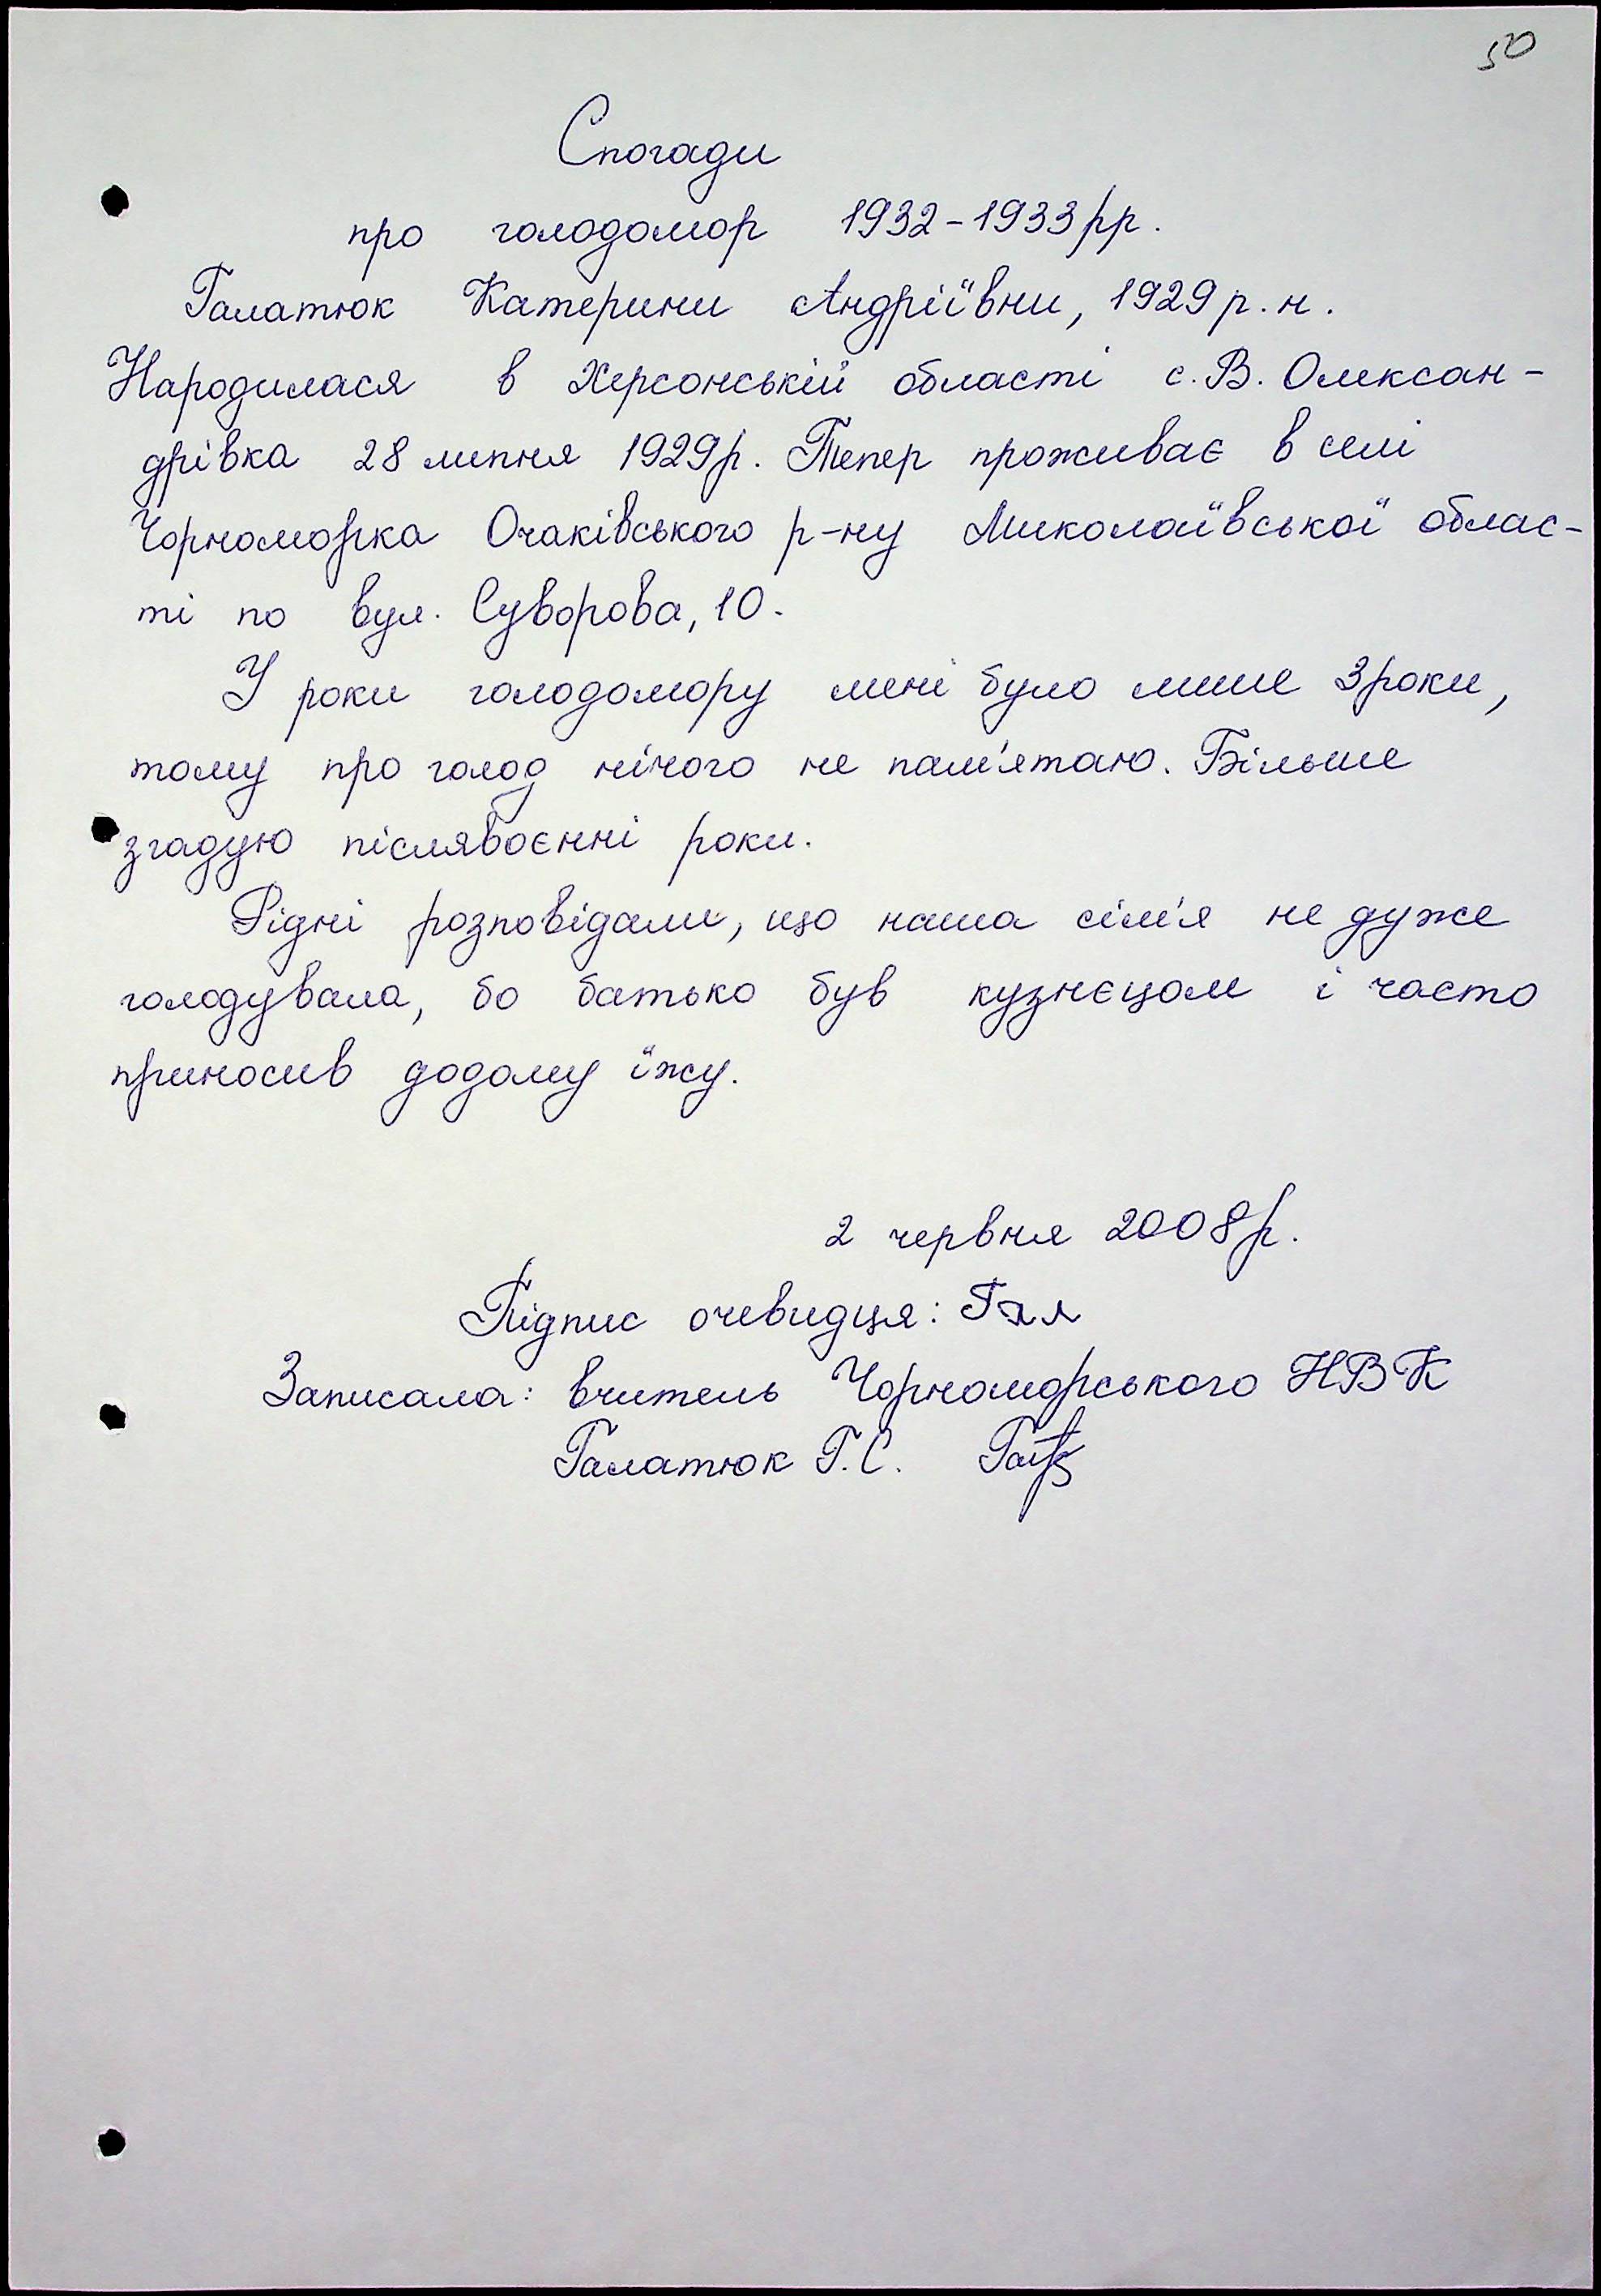 50
Спогади
про голодомор 1932-1933рр.
Галатюк Катерини Андріївни, 1929р.н.
Народилася в Херсонській області с. В. Олексан-
дрівка 28 липня 1929р. Тепер проживає в селі
Чорноморка Очаківського р-ну Миколаївської облас-
ті по вул. Суворова, 10.
У роки голодомору мені було лише 3 роки,
тому про голод нічого не пам'ятаю. Більше
згадую післявоєнні роки.
Рідні розповідали, що наша сім'я не дуже
голодувала, бо батько був кузнєцом і часто
приносив додому їжу.
2 червня 2008р.
Підпис очевидця: Гал
Записала: вчитель Чорноморського НВК
Галатюк Г.С.